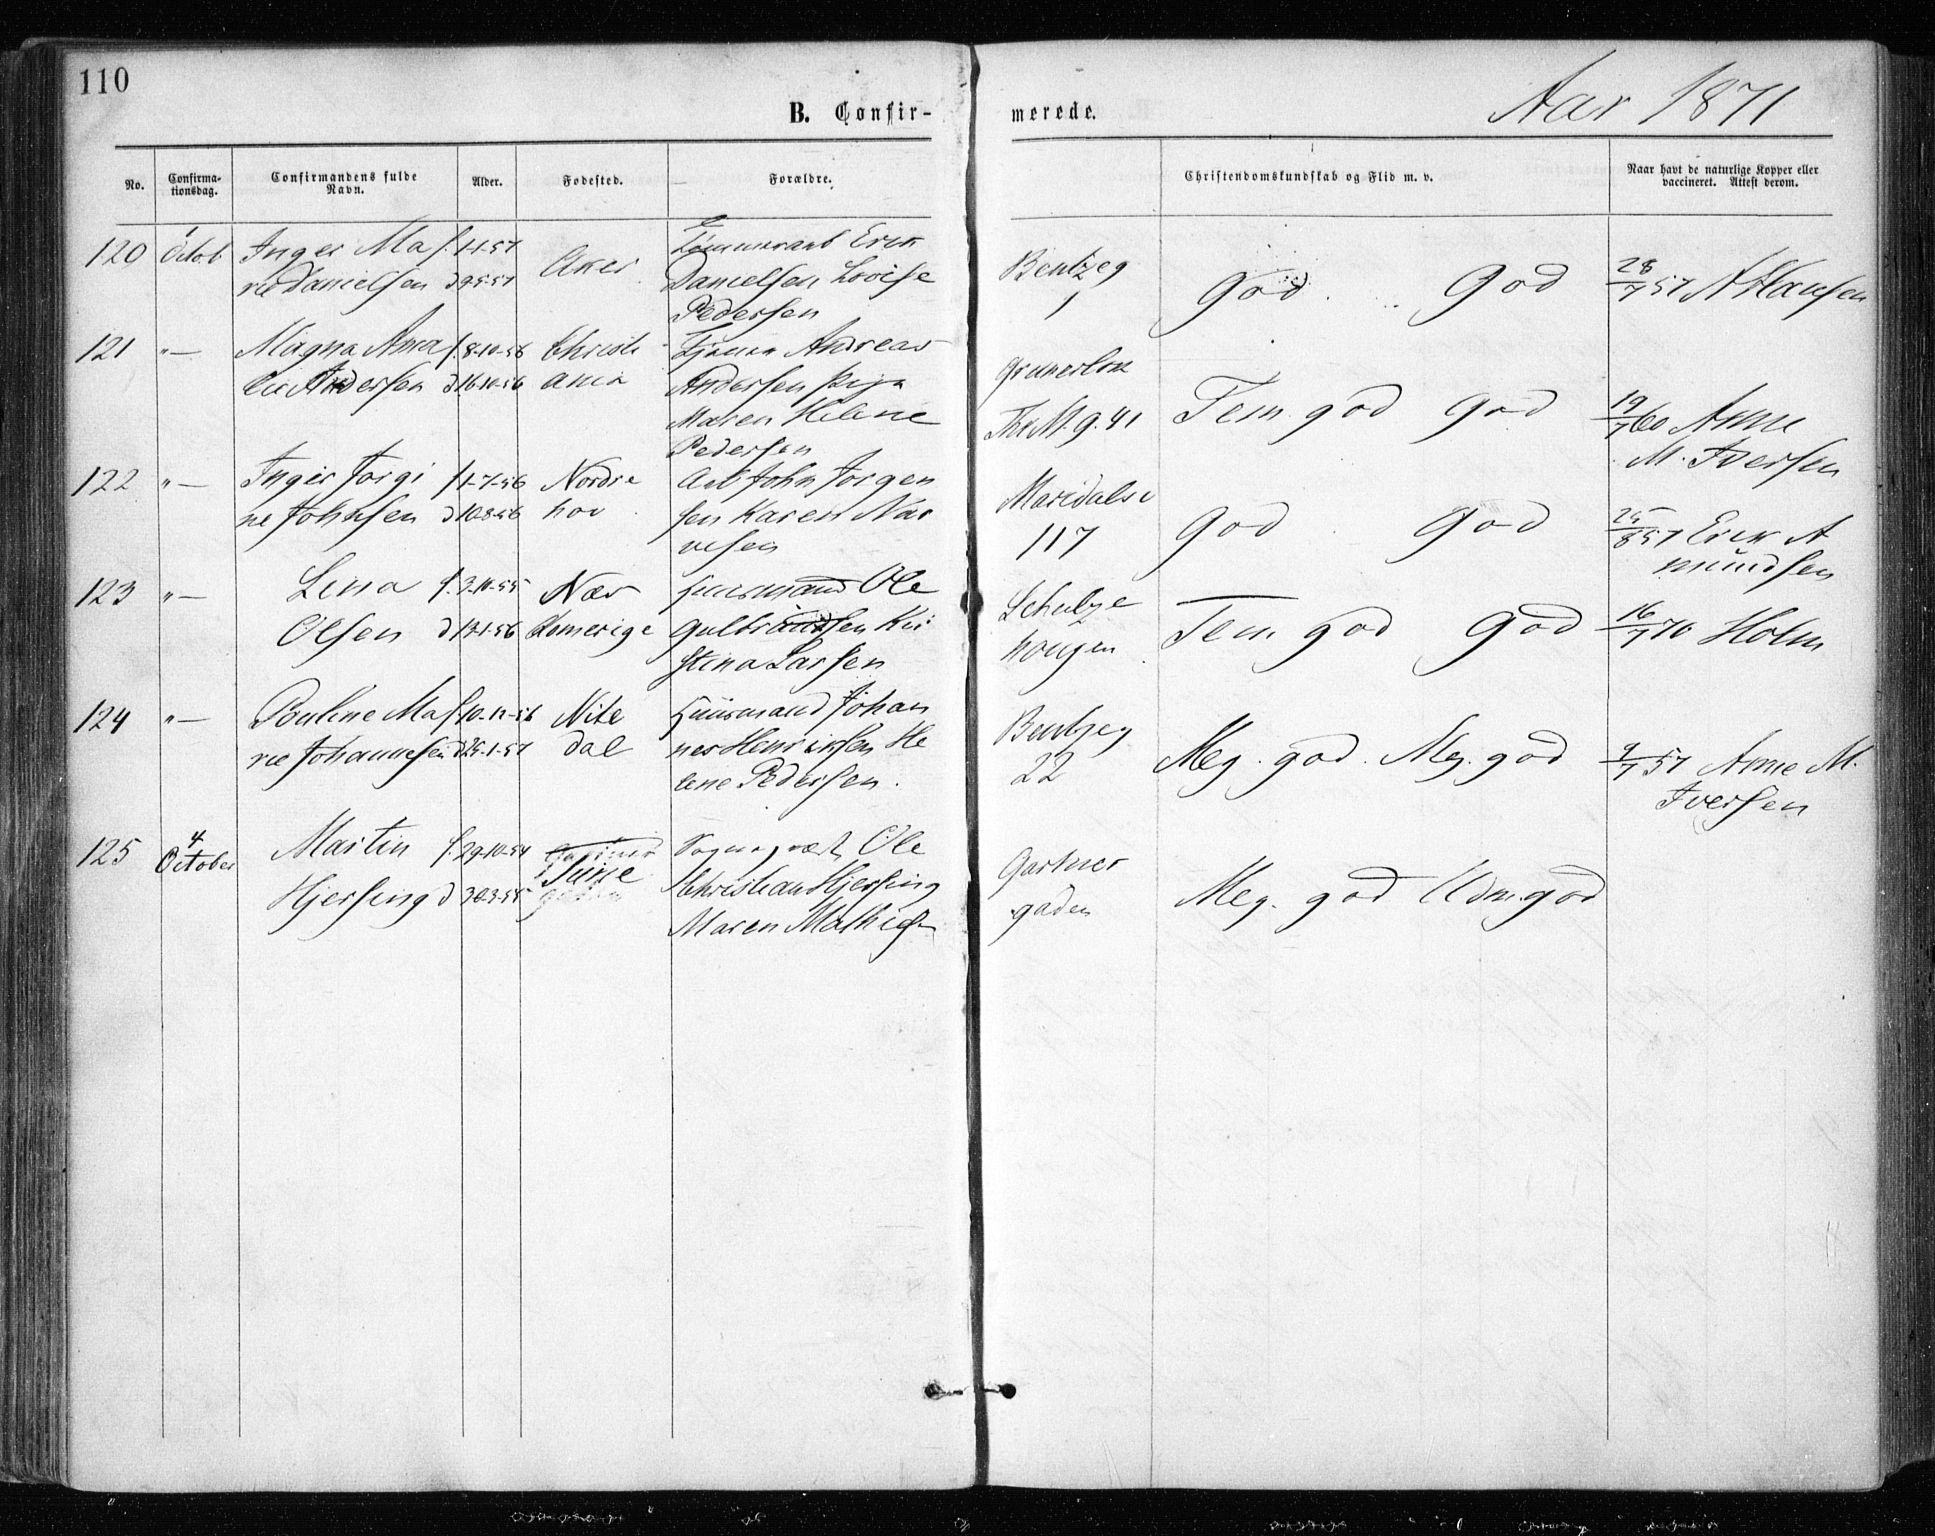 110
B. Confir-
merede.
Aar 1871
No.
Confirma-
tionsdag.
Confirmandens fulde
Navn.
Alder.
Fødested.
Forældre.
Christendomskundskab og Flid m. v.
Naar havt de naturlige Kopper eller
vaccineret. Attest derom.
120
1
Octob
Inger Ma
rie Danielsen
f. 1-1-57
d 9-5-57
Aker
Erik
Danielsen Lovise
Pedersen
Bentzeg
1
God
God
28/7 57 A Hansen
121
"—
Magna Ama
lie Andersen
f. 8-10-56
d. 16-10-56
Christi
ania
Andreas
Andersen
Maren Helene
Pedersen
Grunerløk
Th. M. g. 41
Tem. god
God
19/7 60 Anne
M. Iversen
122
"—
Inger Jørgi
ne Johnsen
f 1-7-56
d 10-8-56
Nordre
hov
Arb John Jørgen
sen Karen Nar
vesen
Maridalsv
117
God
God
25/8 57 Erik A
mundsen
123
"—
Lena
Olsen
f. 3-10-55
d 13-1-56
Næs
Romerige
Huusmand Ole
Gulbrandsen Kir
stina Larsen
Schulze
hougen
Tem god
God
16/7 70 Holm
124
"—
Pouline Ma
rie Johannesen
f 10-12-56
d 25-1-57
Nite
dal
Huusmand Johan
nes Henriksen He
lene Pedersen.
Bentzeg
22
Meg. god.
Meg. god
9/7 57 Anne M.
Iversen
125
4
October
Martin
Hjersing
f. 29-10-54
d 30-3-55
Ole
Christian Hjersing
Maren Mathies
Gartner
gaden
Meg. god
Udm. god